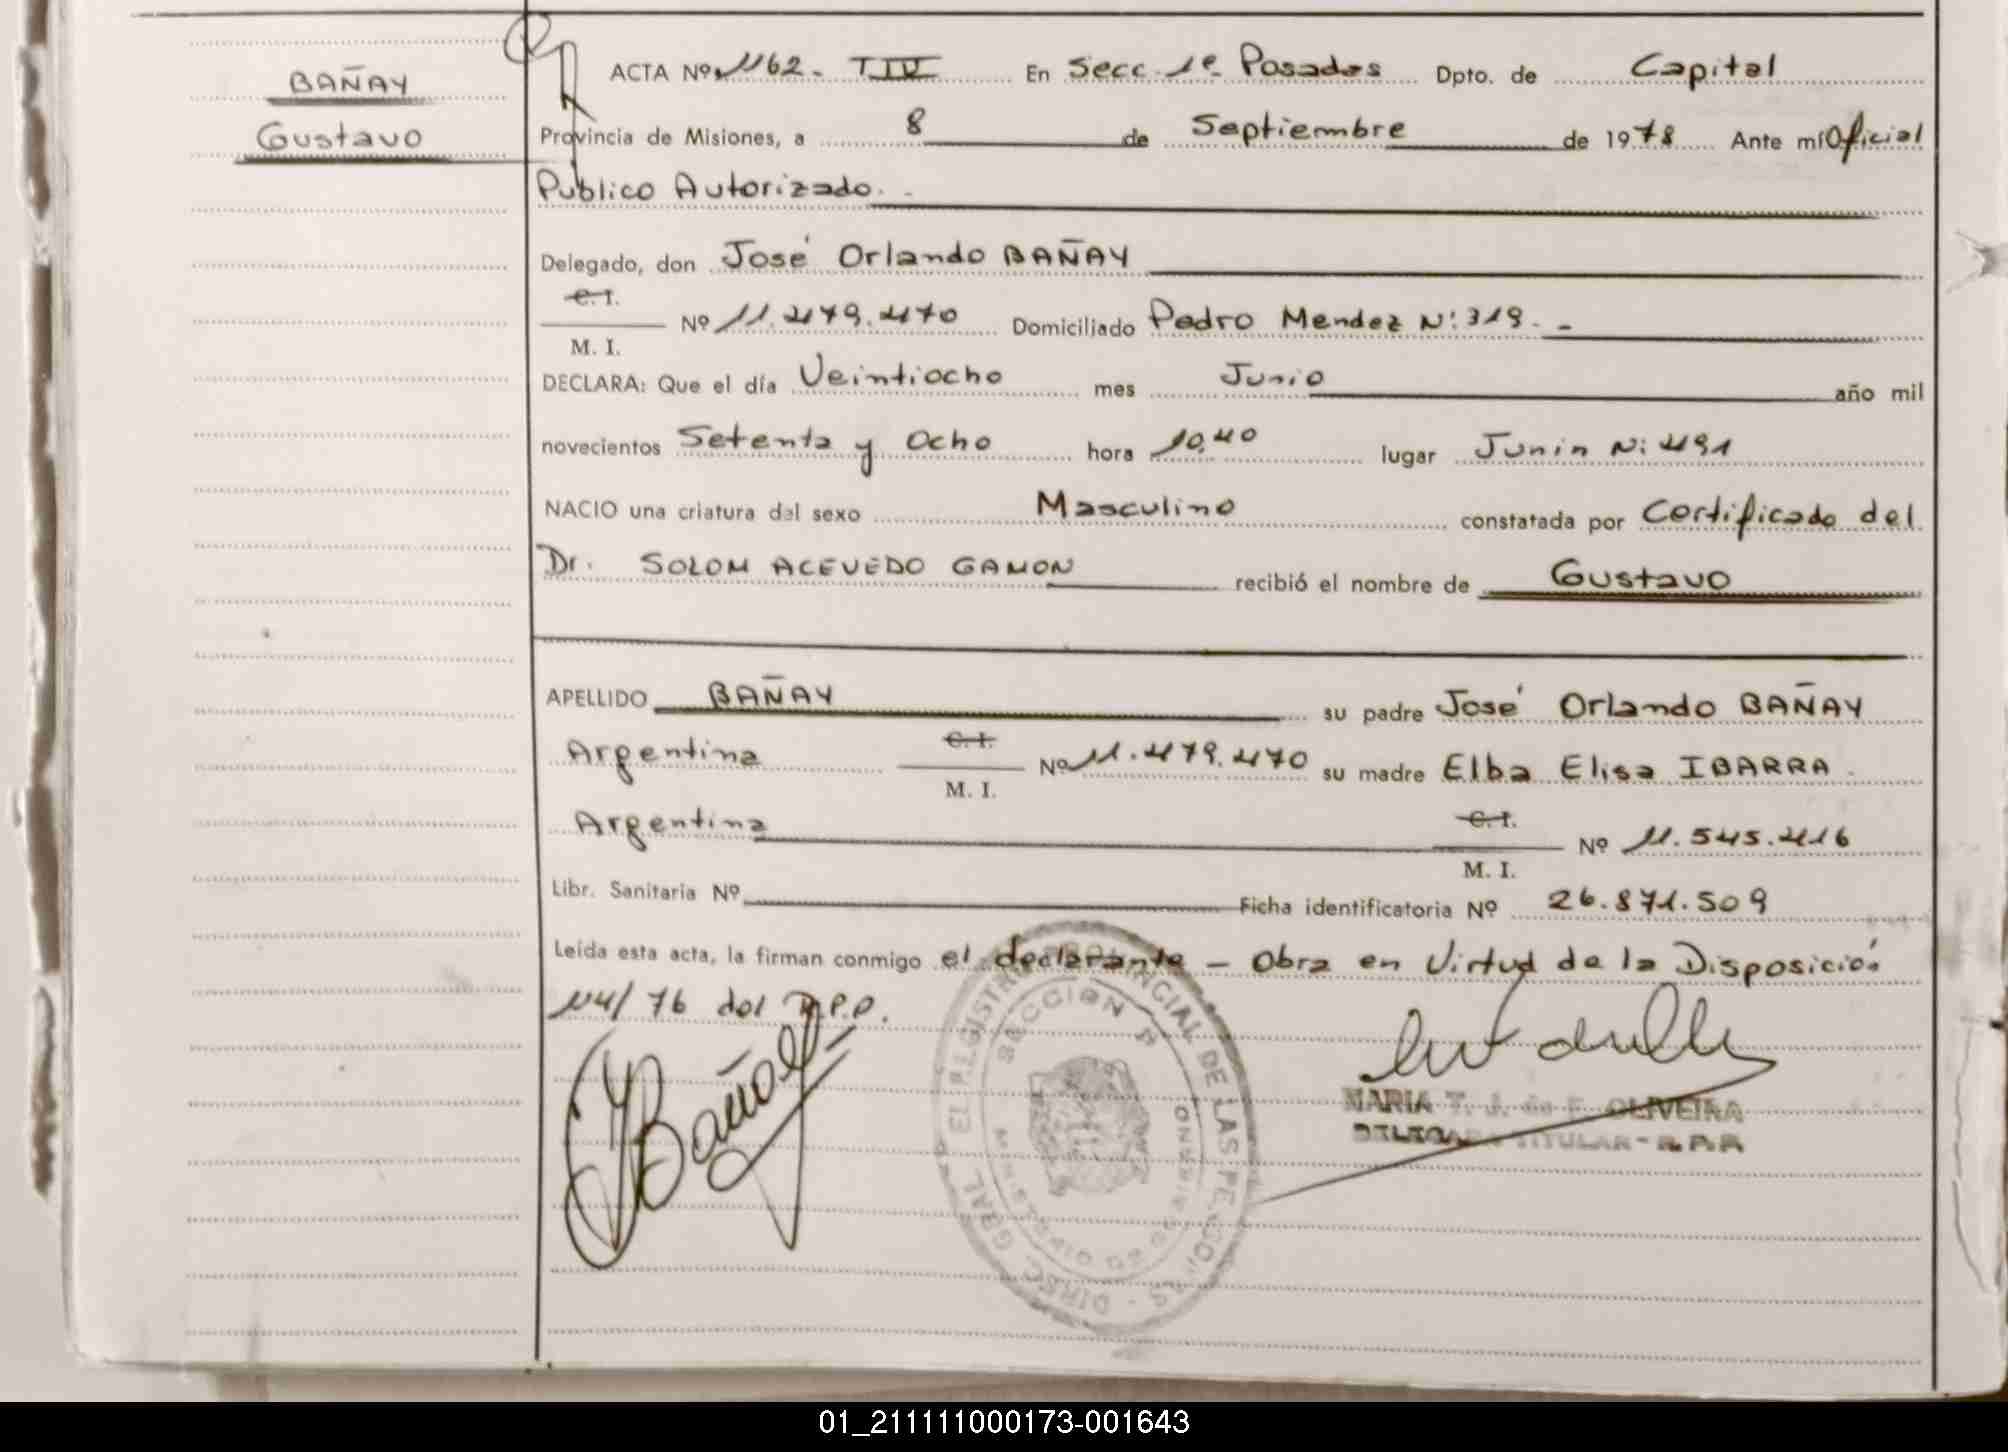 BAÑAY
Gustavo
ACTA Nº 1162. TIV En Secc. 1º Posadas Dpto. de Capital
Provincia de Misiones, a 8 de Septiembre de 1978 Ante mí Oficial
Publico Autorizado. -
Delegado, don José Orlando BAÑAY
C.I.
Nº 11.479.470 Domiciliado Pedro Mendez N: 319. -
M. I.
DECLARA: Que el día Veintiocho mes Junio año mil
novecientos Setenta y Ocho hora 10,40 lugar Junin N: 491
NACIO una criatura del sexo Masculino constatada por Certificado del
Dr. SOLOM ACEVEDO GAMON recibió el nombre de Gustavo
APELLIDO BAÑAY su padre José Orlando BAÑAY
Argentina C.I. Nº 11.479.470 su madre Elba Elisa IBARRA.
M. I.
Argentina C.I. Nº 11.545.416
M. I.
Libr. Sanitaria Nº Ficha identificatoria Nº 26.871.509
Leída esta acta, la firman conmigo el declarante - Obra en Virtud de la Disposición
114/76 del R.P.P.
DIREC. GRAL. EL REGISTRO PROVINCIAL DE LAS PERSONAS
SECCION
MARIA T. J. de F. OLIVEIRA
DELEGADA TITULAR - R.P.P.
01_211111000173-001643